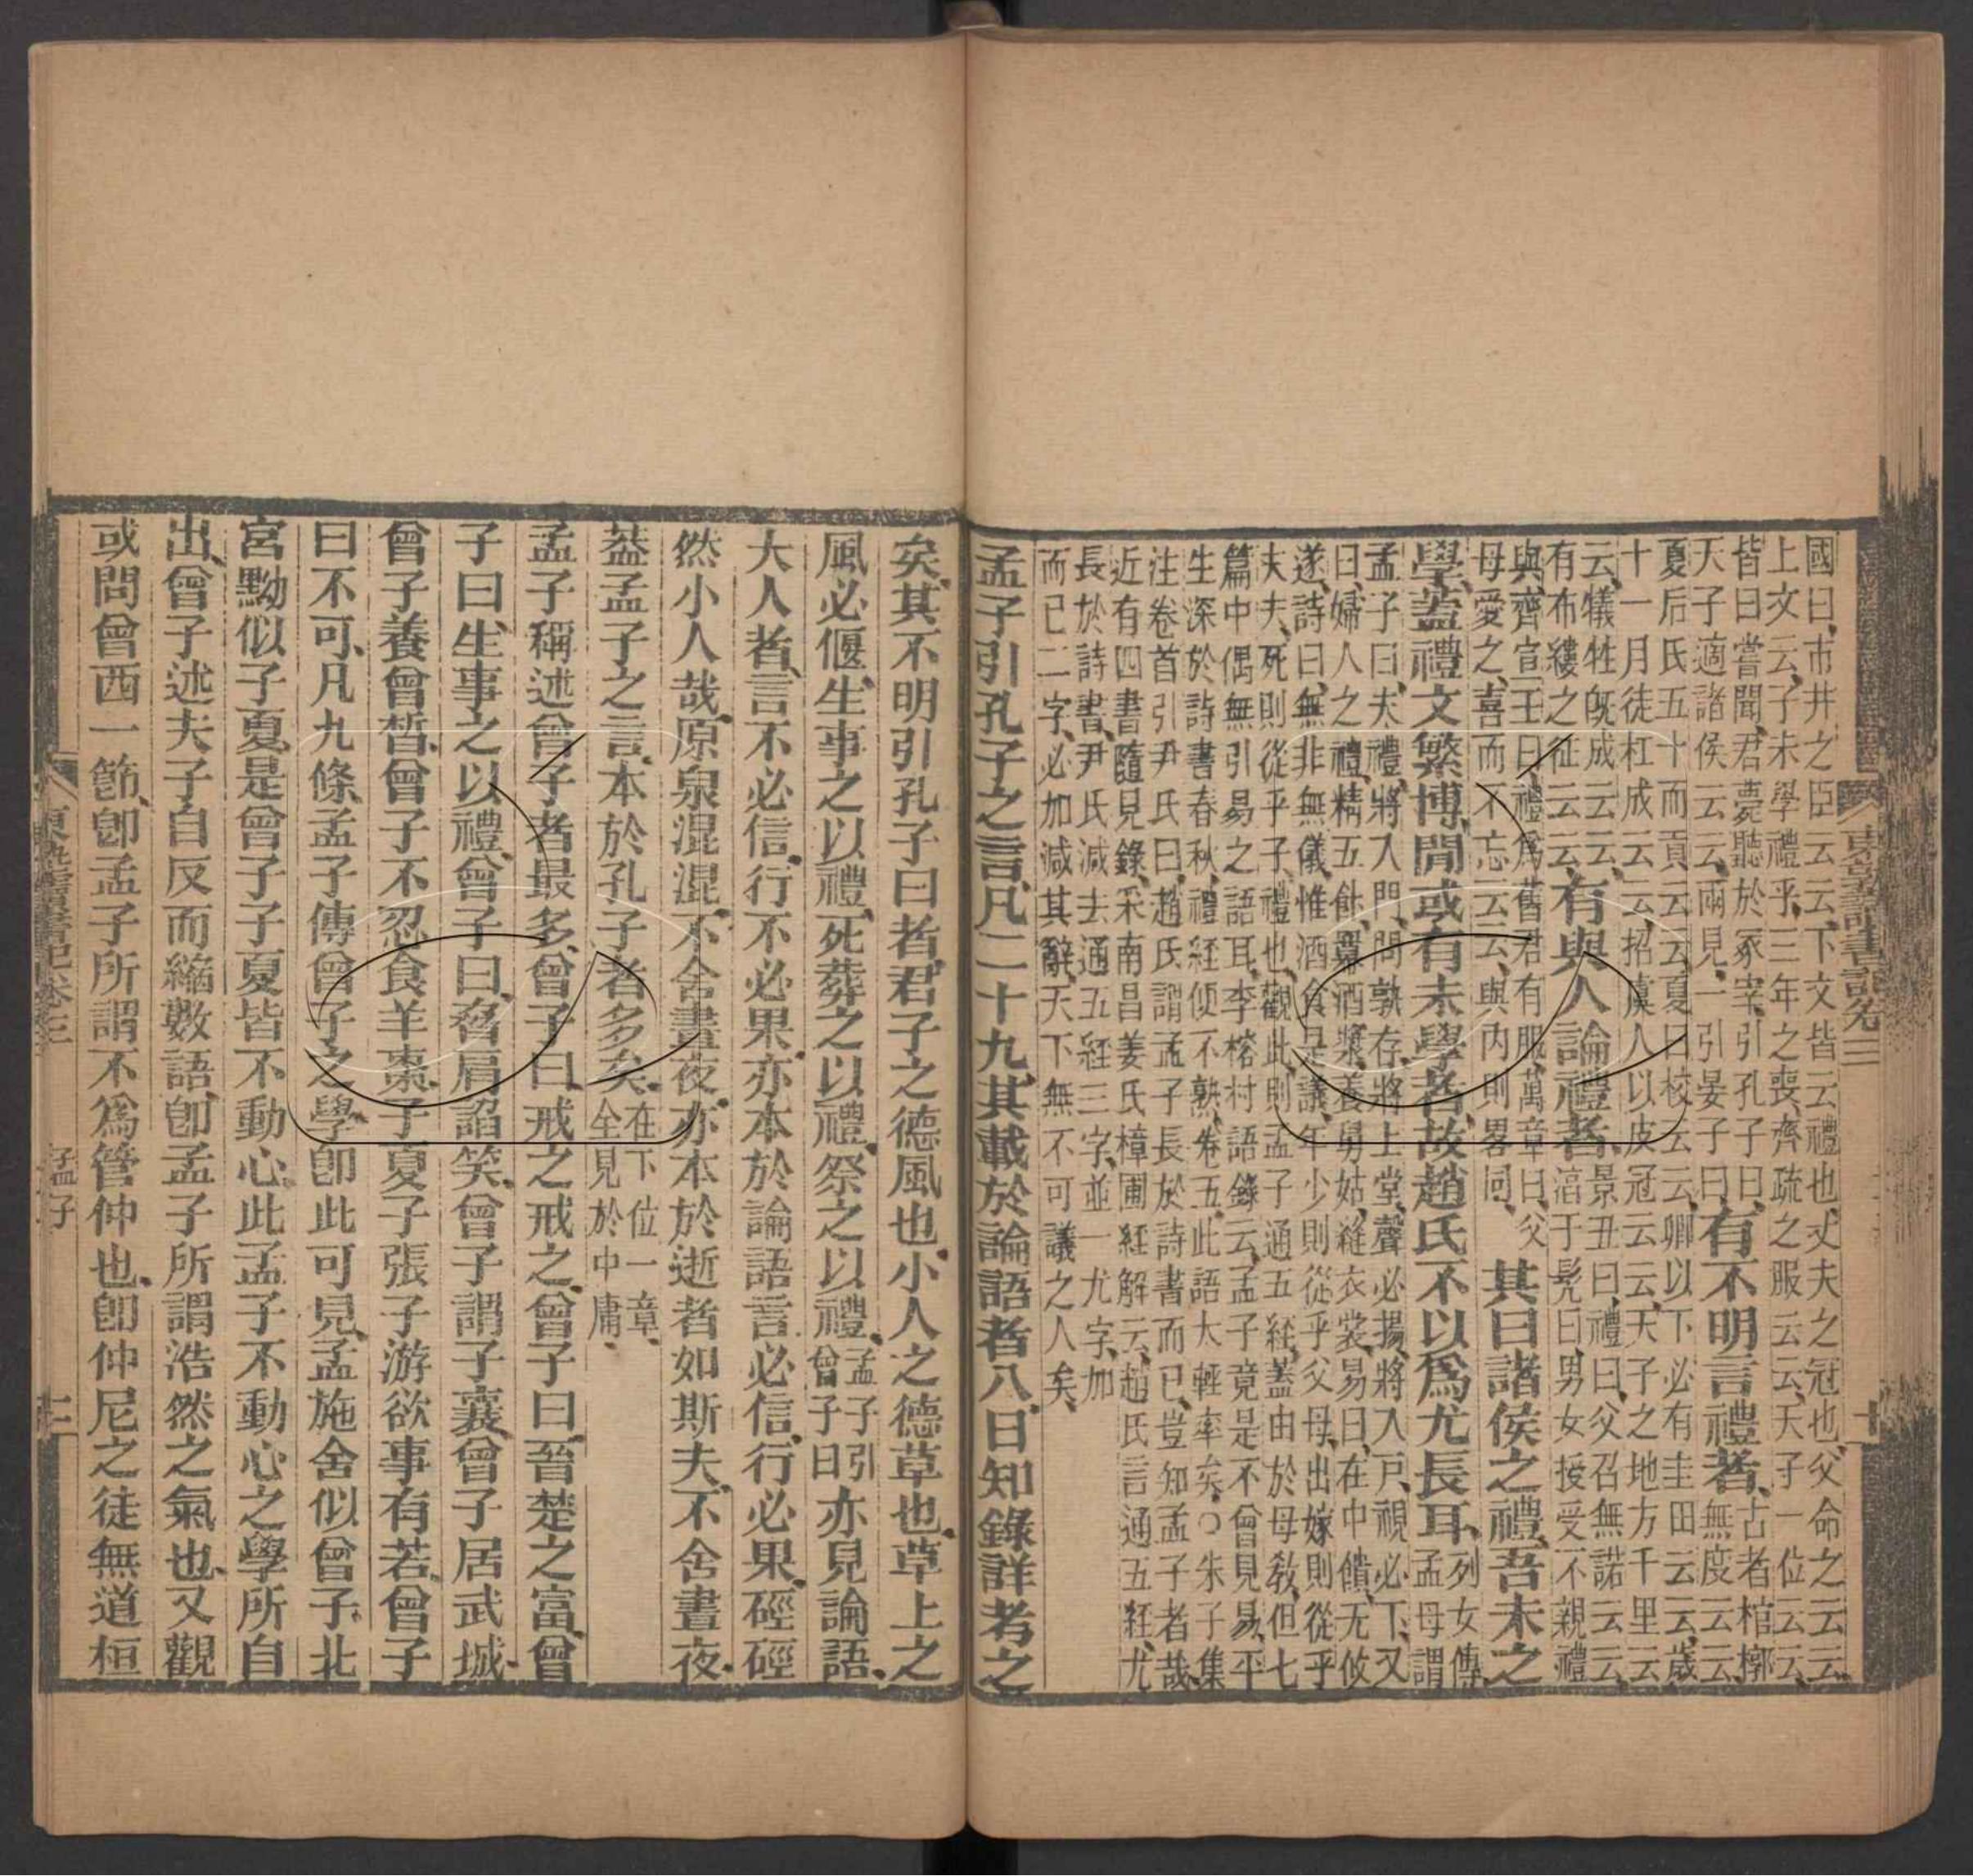 國曰、市井之臣云云、下文皆云禮也、丈夫之冠也、父命之云云、
上文云、子未學禮乎、三年之喪、齊疏之服云云、天子一位云云、
皆曰嘗聞、君薨聽於冢宰、引孔子曰、
天子適諸侯云云、兩見、一引晏子曰、
有不明言禮者、
古者棺槨
無度云云、
夏后氏五十而貢云云、夏曰校云云、卿以下必有圭田云云、歲
十一月徒杠成云云、招虞人以皮冠云云、天子之地方千里云
云、犧牲既成云云、
有布縷之征云云、
有與人論禮者、
景丑曰、禮曰、父召無諾云云、
淳于髡曰、男女授受不親禮
與、齊宣王曰、禮爲舊君有服、萬章曰、父
母愛之、喜而不忘云云、與內則畧同、
其曰諸侯之禮、吾未之
學、蓋禮文繁博、閒或有未學者、故趙氏不以爲尤長耳、
列女傳
孟母謂
孟子曰、夫禮、將入門、問孰存、將上堂、聲必揚、將入戶、視必下、又
曰、婦人之禮、精五飰、羃酒漿、養舅姑、縫衣裳、易曰、在中饋、无攸
遂、詩曰、無非無儀、惟酒食是議、年少則從乎父母、出嫁則從乎
夫、夫死則從乎子、禮也、觀此、則孟子通五經、蓋由於母敎、但七
篇中偶無引易之語耳、李榕村語錄云、孟子竟是不曾見易、平
生深於詩書春秋、禮經便不熟、卷五、此語太輕率矣、○朱子集
注卷首引尹氏曰、趙氏謂孟子長於詩書而已、豈知孟子者哉、
近有四書隨見錄、采南昌姜氏樟圃經解云、趙氏言通五經、尤
長於詩書、尹氏減去通五經三字、並一尤字、加
而已二字、必加減其辭、天下無不可議之人矣、
孟子引孔子之言、凡二十九、其載於論語者八、日知錄詳考之
矣、其不明引孔子曰者、君子之德風也、小人之德草也、草上之
風必偃、生事之以禮、死葬之以禮、祭之以禮、
孟子引
曾子曰
亦見論語、
大人者、言不必信、行不必果、亦本於論語言必信、行必果、硜硜
然小人哉、原泉混混、不舍晝夜、亦本於逝者如斯夫、不舍晝夜、
葢孟子之言、本於孔子者多矣、
在下位一章、
全見於中庸、
孟子稱述曾子者最多、曾子曰、戒之戒之、曾子曰、晉楚之富、曾
子曰、生事之以禮、曾子曰、脅肩諂笑、曾子謂子襄、曾子居武城、
曾子養曾晳、曾子不忍食羊棗、子夏子張子游欲事有若、曾子
曰不可、凡九條、孟子傳曾子之學、卽此可見、孟施舍似曾子、北
宮黝似子夏、是曾子子夏皆不動心、此孟子不動心之學所自
出、曾子述夫子自反而縮數語、卽孟子所謂浩然之氣也、又觀
或問曾西一節、卽孟子所謂不爲管仲也、卽仲尼之徒無道桓
東塾讀書記卷三
孟子